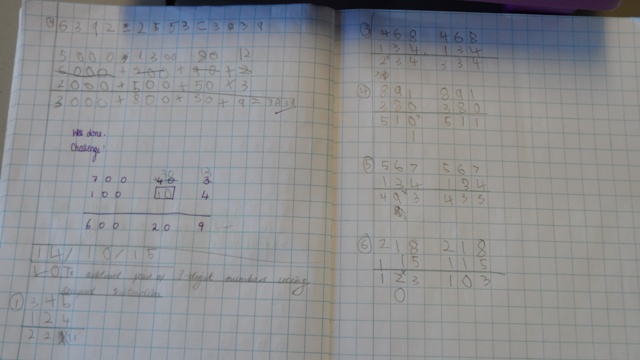 6392 - 2553 = 3839
5000 1300 80 12
6000 + 300 + 90 + 2
2000 + 500 + 50 + 3
3000 + 800 + 30 + 9 = 3839
Well done.
Challenge:
30 13
700 40 3
100 10 4
600 20 9
14/10/15
L.O. To subtract 3 digit number using
① 346
124
22
③ 468 468
134 134
234 334
④ 891 891
380 380
510 511
1
⑤ 567 567
134 134
493 433
⑥ 218 218
115 115
123 103
0